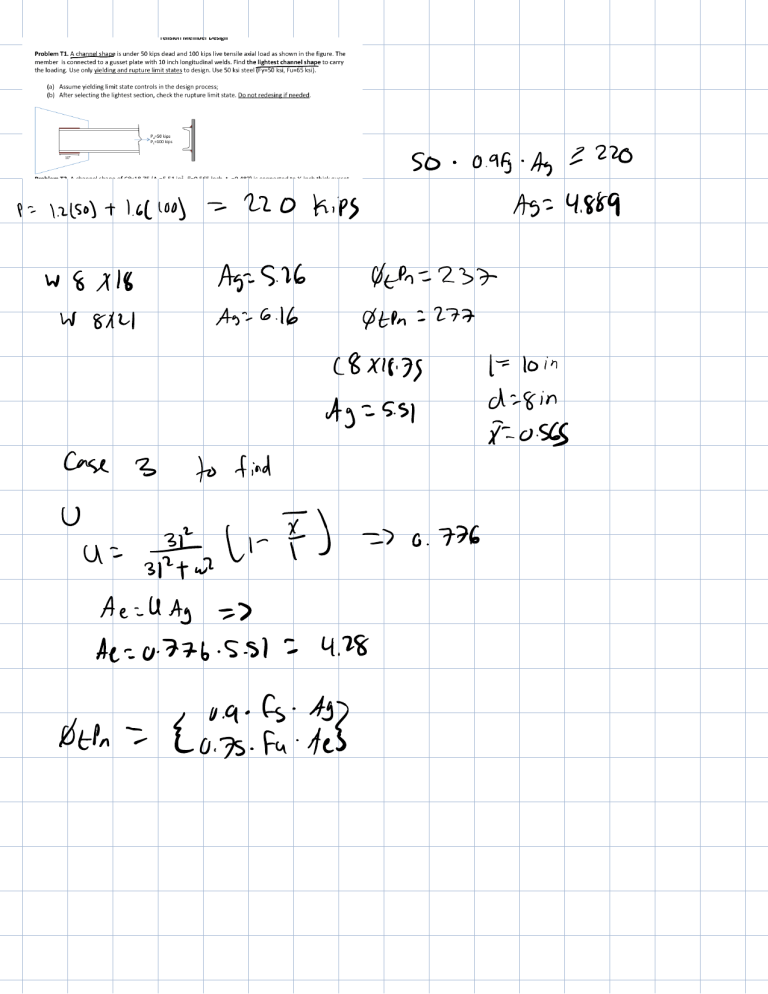 Tension Member Design
Problem T1. A channel shape is under 50 kips dead and 100 kips live tensile axial load as shown in the figure. The
member is connected to a gusset plate with 10 inch longitudinal welds. Find the lightest channel shape to carry
the loading. Use only yielding and rupture limit states to design. Use 50 ksi steel (Fy=50 ksi, Fu=65 ksi).
(a) Assume yielding limit state controls in the design process;
(b) After selecting the lightest section, check the rupture limit state. Do not redesing if needed.
10"
50 · 0.9Fy · Ag ≥ 220
P = 1.2(50) + 1.6(100) = 220 kips
Ag = 4.889
W 8 X18 Ag = 5.26 ØtPn = 237
W 8X21 Ag = 6.16 ØtPn = 277
C8 X18.75 l = 10 in
Ag = 5.51 d = 8 in
x̄ = 0.565
Case 3 to find
U
U = 3l²/(3l² + w²) (1 - x̄/l) => 0.776
Ae = U Ag =>
Ae = 0.776 · 5.51 = 4.28
ØtPn = { 0.9 · Fy · Ag }
{ 0.75 · Fu · Ae }